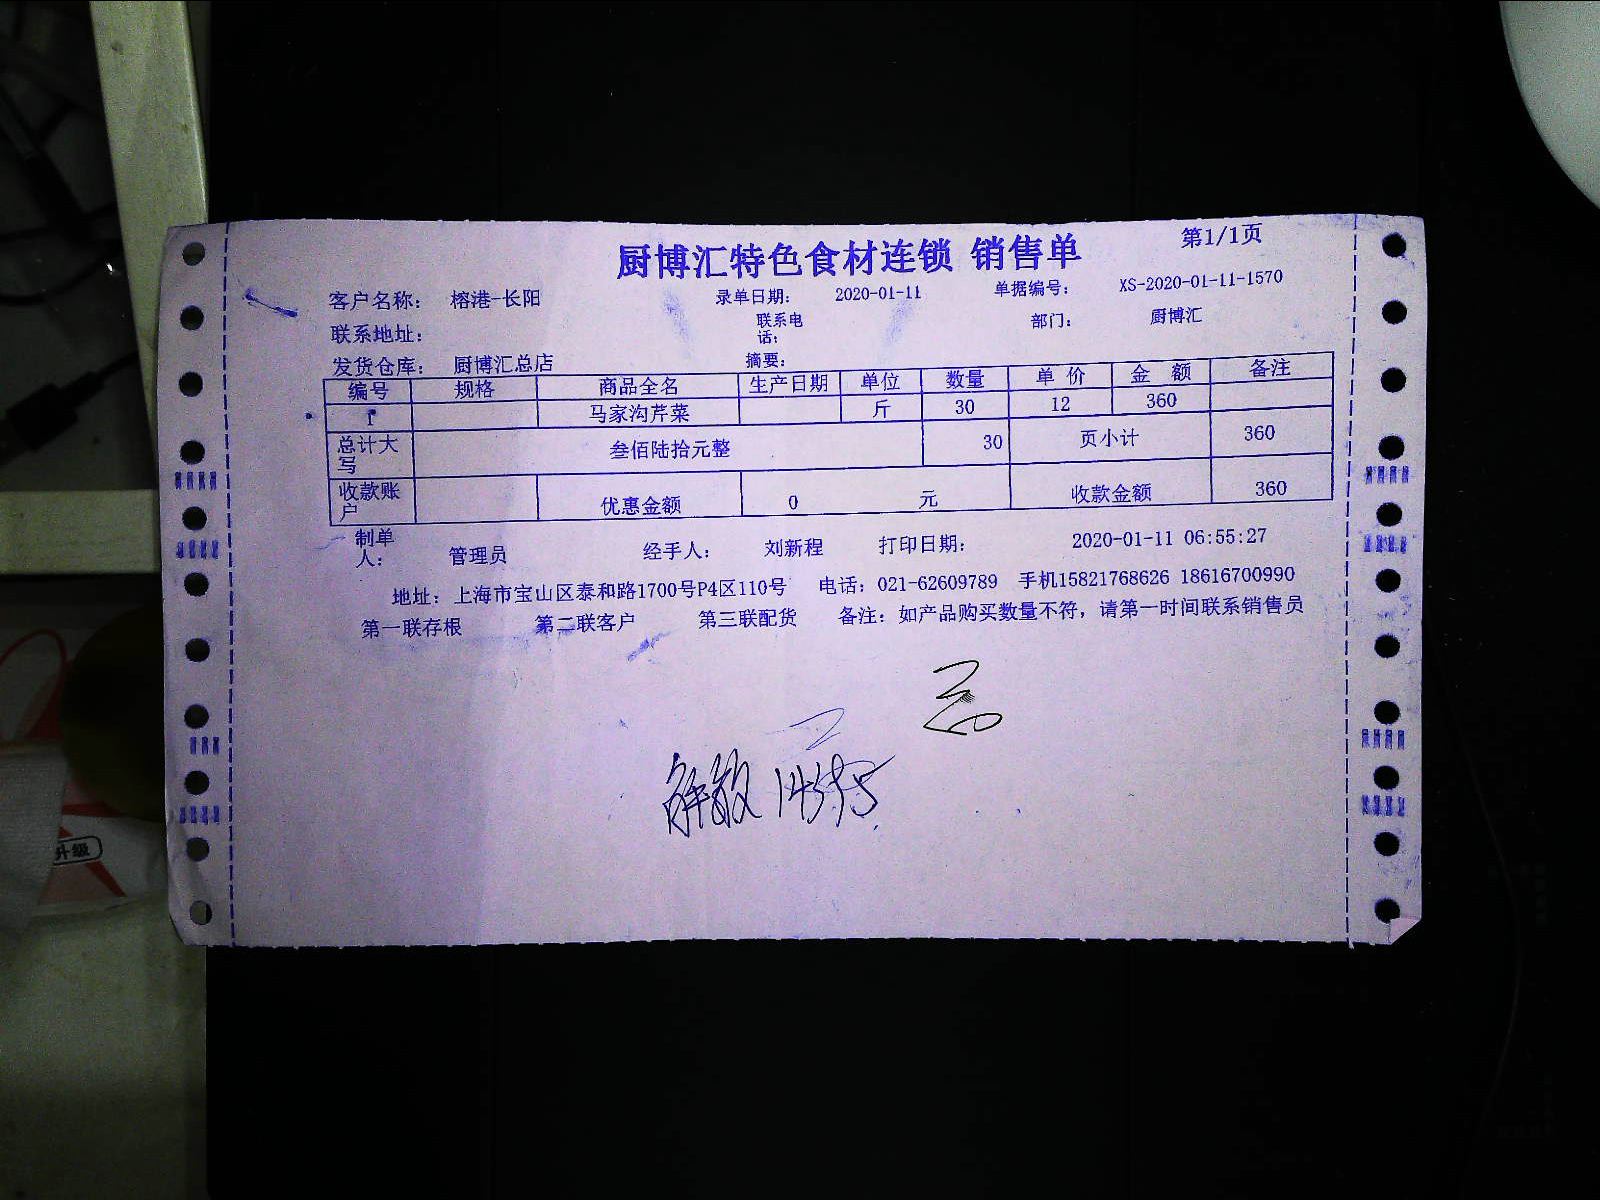 厨博汇特色食材连锁 销售单 第1/1页
客户名称: 榕港-长阳 录单日期: 2020-01-11 单据编号: XS-2020-01-11-1570
联系地址: 联系电话: 部门: 厨博汇
发货仓库: 厨博汇总店 摘要:
编号 规格 商品全名 生产日期 单位 数量 单价 金额 备注
1 马家沟芹菜 斤 30 12 360
总计大写 叁佰陆拾元整 30 页小计 360
收款账户 优惠金额 0 元 收款金额 360
制单人: 管理员 经手人: 刘新程 打印日期: 2020-01-11 06:55:27
地址: 上海市宝山区泰和路1700号P4区110号 电话: 021-62609789 手机15821768626 18616700990
第一联存根 第二联客户 第三联配货 备注: 如产品购买数量不符, 请第一时间联系销售员
升级